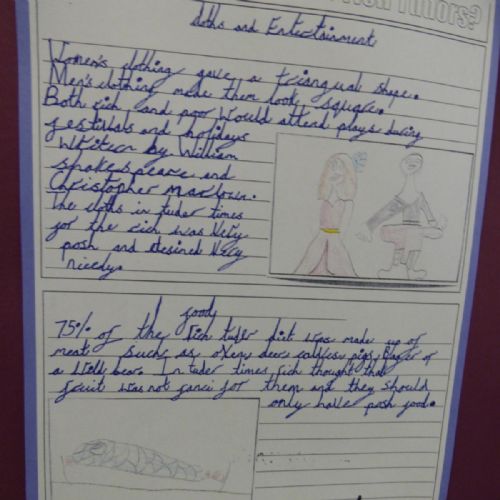 Tudors?
Cloths and Entertainment
Women's clothing gave a triangual shape.
Men's clothing made them look square.
Both rich and poor would attend plays during
festivals and holidays
writtern by William
shakespeare and
Christopher marlown.
The cloths in tuder times
for the rich was very
posh and desined very
nicely.
food
75% of the rich tuder diet was made up of
meat such as oxens deers calfes pigs
a well boar. In tuder times rich thought that
fruit was not fance for them and they should
only have posh food.